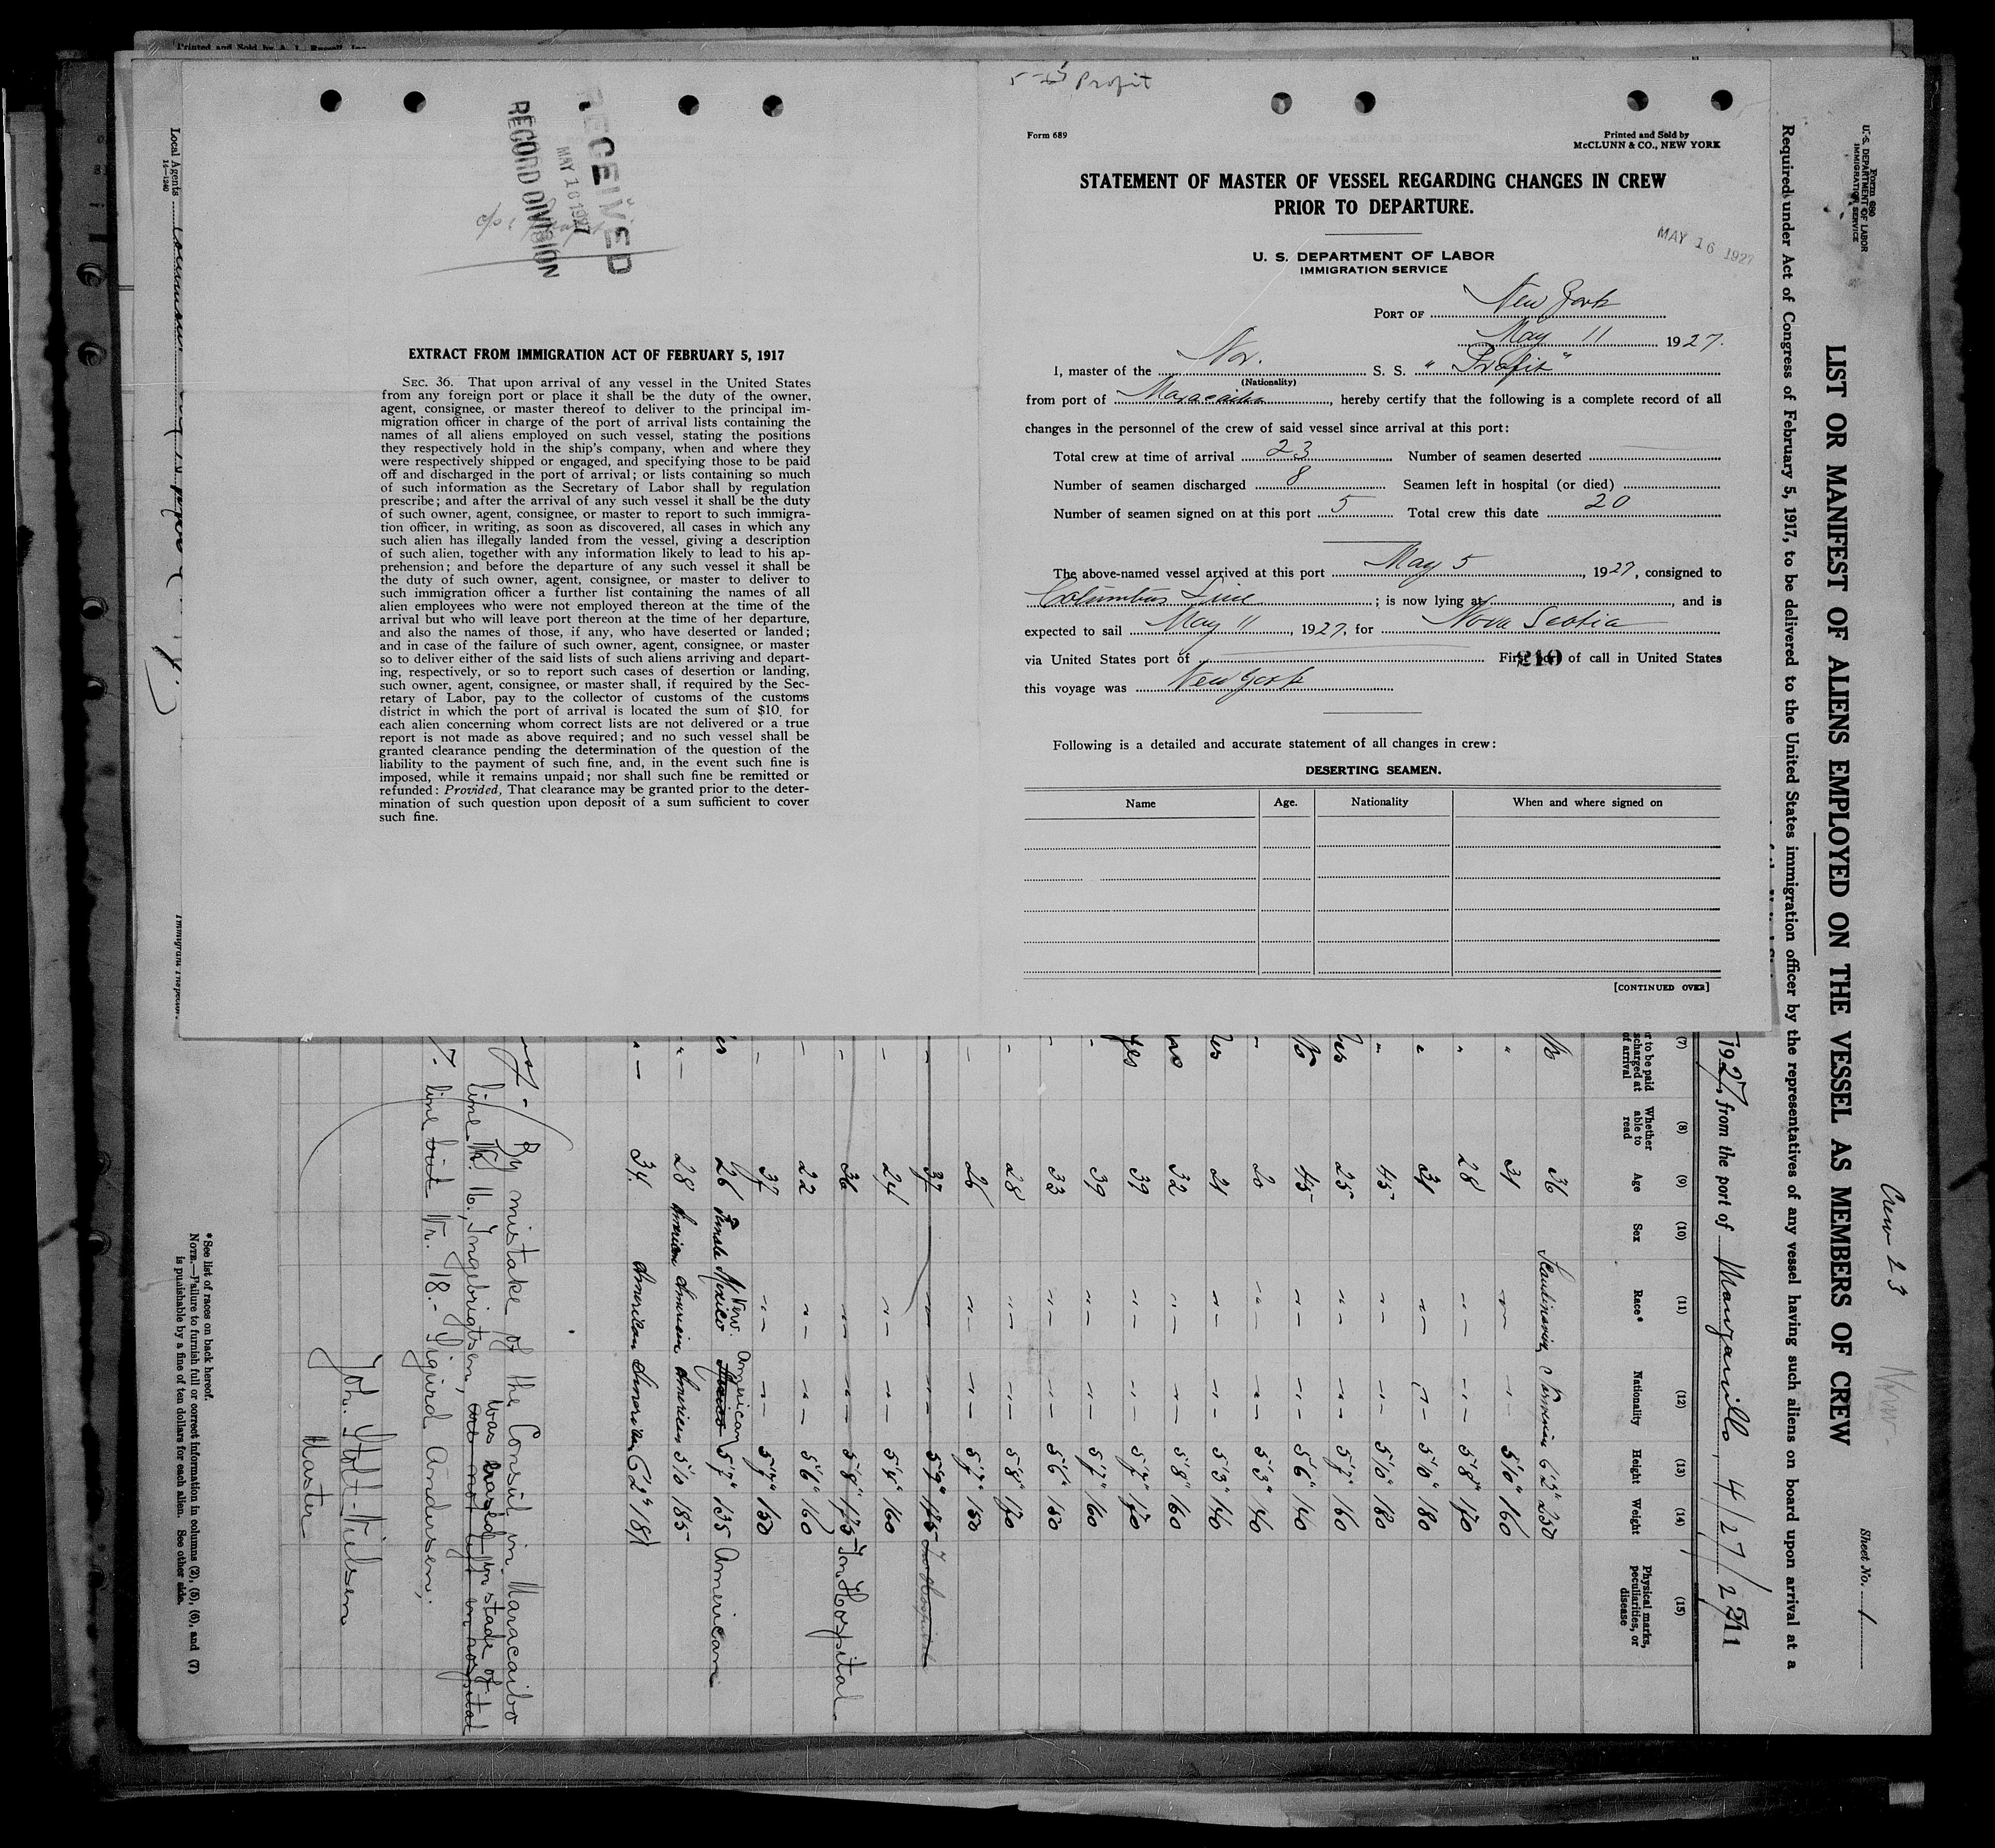 Printed and Sold by A. L. Russell, Inc.
5-5 Profit
RECEIVED
MAY 16 1927
RECORD DIVISION
EXTRACT FROM IMMIGRATION ACT OF FEBRUARY 5, 1917
SEC. 36. That upon arrival of any vessel in the United States
from any foreign port or place it shall be the duty of the owner,
agent, consignee, or master thereof to deliver to the principal im-
migration officer in charge of the port of arrival lists containing the
names of all aliens employed on such vessel, stating the positions
they respectively hold in the ship's company, when and where they
were respectively shipped or engaged, and specifying those to be paid
off and discharged in the port of arrival; or lists containing so much
of such information as the Secretary of Labor shall by regulation
prescribe; and after the arrival of any such vessel it shall be the duty
of such owner, agent, consignee, or master to report to such immigra-
tion officer, in writing, as soon as discovered, all cases in which any
such alien has illegally landed from the vessel, giving a description
of such alien, together with any information likely to lead to his ap-
prehension; and before the departure of any such vessel it shall be
the duty of such owner, agent, consignee, or master to deliver to
such immigration officer a further list containing the names of all
alien employees who were not employed thereon at the time of the
arrival but who will leave port thereon at the time of her departure,
and also the names of those, if any, who have deserted or landed;
and in case of the failure of such owner, agent, consignee, or master
so to deliver either of the said lists of such aliens arriving and depart-
ing, respectively, or so to report such cases of desertion or landing,
such owner, agent, consignee, or master shall, if required by the Sec-
retary of Labor, pay to the collector of customs of the customs
district in which the port of arrival is located the sum of $10 for
each alien concerning whom correct lists are not delivered or a true
report is not made as above required; and no such vessel shall be
granted clearance pending the determination of the question of the
liability to the payment of such fine, and, in the event such fine is
imposed, while it remains unpaid; nor shall such fine be remitted or
refunded: Provided, That clearance may be granted prior to the deter-
mination of such question upon deposit of a sum sufficient to cover
such fine.
Form 689
Printed and Sold by
McCLUNN & CO., NEW YORK
STATEMENT OF MASTER OF VESSEL REGARDING CHANGES IN CREW
PRIOR TO DEPARTURE.
MAY 16 1927
U. S. DEPARTMENT OF LABOR
IMMIGRATION SERVICE
PORT OF New York
May 11 1927.
I, master of the Nor. S. S. "Profit"
(Nationality)
from port of Maracaibo, hereby certify that the following is a complete record of all
changes in the personnel of the crew of said vessel since arrival at this port:
Total crew at time of arrival 23 Number of seamen deserted
Number of seamen discharged 8 Seamen left in hospital (or died)
Number of seamen signed on at this port 5 Total crew this date 20
The above-named vessel arrived at this port May 5, 1927, consigned to
Columbus Line; is now lying at, and is
expected to sail May 11, 1927, for Nova Scotia
via United States port of First port of call in United States
210
this voyage was New York
Following is a detailed and accurate statement of all changes in crew:
DESERTING SEAMEN.
Name Age. Nationality When and where signed on
[CONTINUED OVER]
Local Agents
14—1240
Immigrant Inspector.
Form 680
U. S. DEPARTMENT OF LABOR
IMMIGRATION SERVICE
Crew 23
Sheet No. 1
LIST OR MANIFEST OF ALIENS EMPLOYED ON THE VESSEL AS MEMBERS OF CREW
Required under Act of Congress of February 5, 1917, to be delivered to the United States immigration officer by the representatives of any vessel having such aliens on board upon arrival at a
1927, from the port of Manzanillo, 4/27/27
(7) (8) (9) (10) (11) (12) (13) (14) (15)
r to be paid
scharged at
of arrival
Whether
able to
read
Age
Sex
Race*
Nationality
Height
Weight
Physical marks,
peculiarities, or
disease
No 36 Scandinavian Norwegian 6'2" 230
" 31 " — " — 5'10" 160
" 28 " — " — 5'8" 170
" 31 " — " — 5'10" 180
" 45 " — " — 5'10 180
Yes 25 " — " — 5'7" 160
No 45 " — " — 5'6" 140
" 20 " — " — 5'3" 140
Yes 21 " — " — 5'3" 140
no 32 " — " — 5'8" 160
yes 39 " — " — 5'7" 170
- 39 " — " — 5'7" 160
- 33 " — " — 5'6" 150
- 28 " — " — 5'8" 170
- 26 " — " — 5'7" 150
- 37 " — " — 5'9" 175 In Hospital
- 24 " — " — 5'4" 160
- 36 " — " — 5'8" 175 In Hospital
- 22 " — " — 5'6" 160
- 37 " — " — 5'7" 150
26 Female New Mexico Mexico American 5'7" 135 American
" — 28 American American American 5'10 185
" — 34 American American 6'2" 181
By mistake of the Consul in Maracaibo
line Nr. 16, Ingebrigtsen, was erased in stade of
and not left in hospital
line but Nr. 18.- Sigurd Andersen;
Joh. Stolt-Nielsen
Master
*See list of races on back hereof.
NOTE.—Failure to furnish full or correct information in columns (2), (5), (6), and (7)
is punishable by a fine of ten dollars for each alien. See other side.